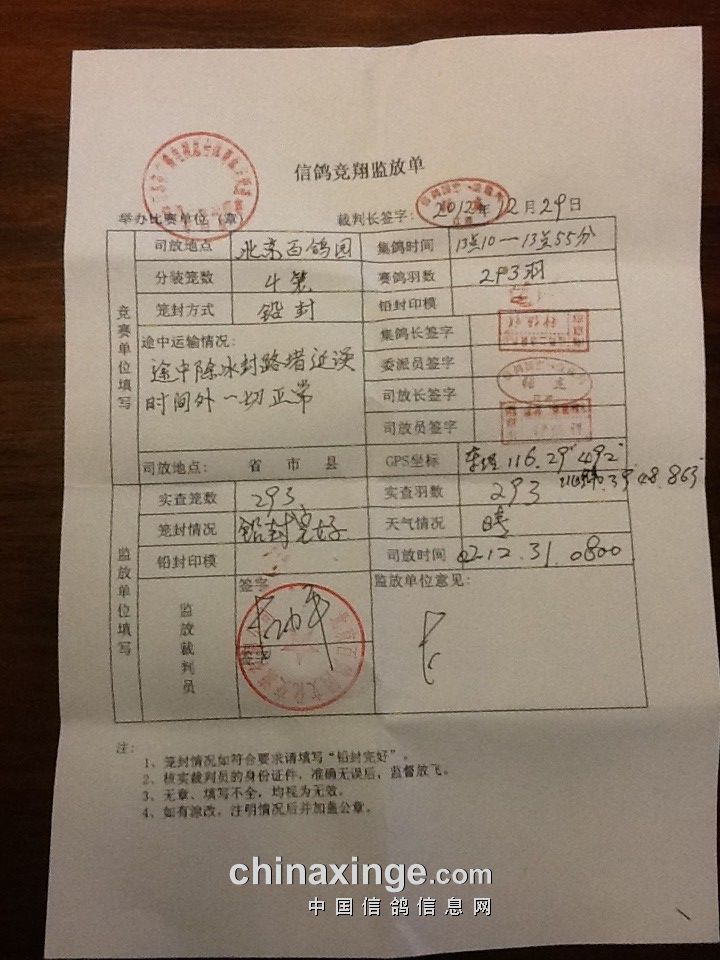 信鸽竞翔监放单
举办比赛单位(章) 裁判长签字: 2012年12月29日
竞赛单位填写
司放地点 北京百鸽园 集鸽时间 13点10—13点55分
分装笼数 4笼 赛鸽羽数 293羽
笼封方式 铅封 铅封印模
途中运输情况: 集鸽长签字
途中除冰封路堵延误 委派员签字
时间外一切正常 司放长签字
司放员签字
司放地点: 省 市 县 GPS坐标 116.29°492
39°48.863
监放单位填写
实查笼数 293 实查羽数 293
笼封情况 铅封完好 天气情况 晴
铅封印模 司放时间 12.31.0800
监放裁判员 签字 监放单位意见:
签字
注:
1、笼封情况如符合要求请填写“铅封完好”。
2、核实裁判员的身份证件,准确无误后,监督放飞。
3、无章、填写不全,均视为无效。
4、如有涂改,注明情况后并加盖公章。
chinaxinge.com
中国信鸽信息网